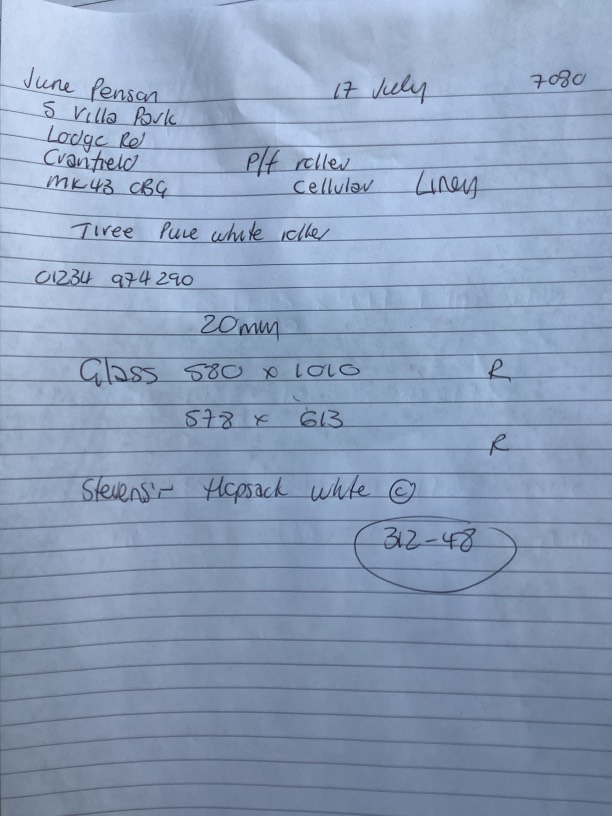 June Penson 17 July 7080
5 Villa Park
Lodge Rd
Cranfield P/f roller
MK43 0BG Cellular Linen
Tiree Pure white roller
01234 974290
20mm
Glass 580 x 1010 R
578 x 613
R
Stevens:- Hopsack white ©
312-48